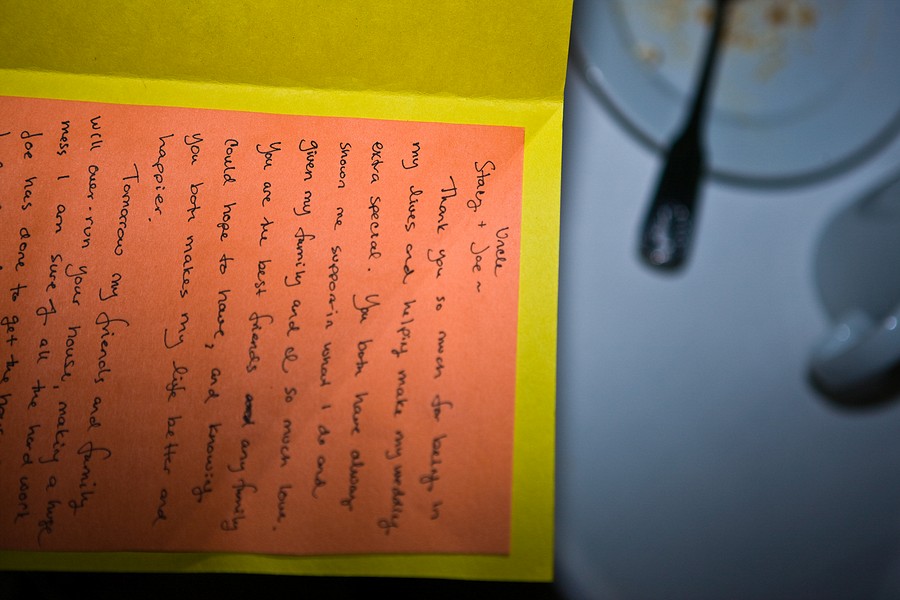 Uncle
Stacy + Joe ~
Thank you so much for being in
my lives and helping make my wedding
extra special. You both have always
shown me support in what I do and
given my family and I so much love.
You are the best friends and any family
could hope to have, and knowing
you both makes my life better and
happier.
Tomorrow my friends and family
will over-run your house, making a huge
mess I am sure of all the hard work
Joe has done to get the